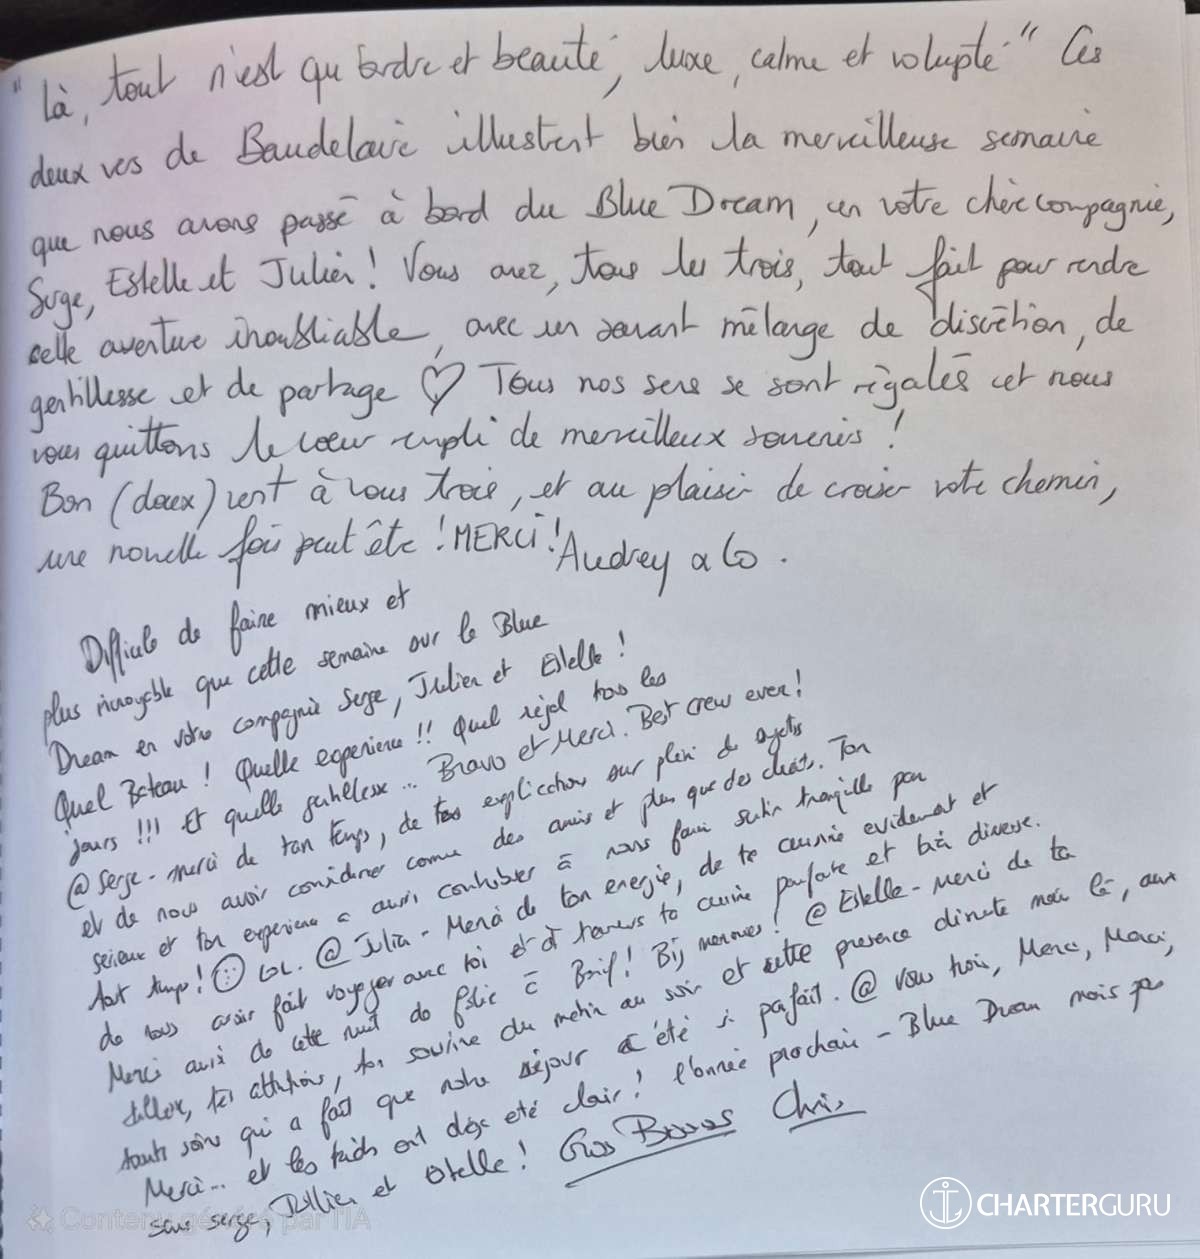 "là, tout n'est qu'ordre et beauté, luxe, calme et volupté." Ces
deux vers de Baudelaire illustrent bien la merveilleuse semaine
que nous avons passé à bord du Blue Dream, en votre chère compagnie,
Serge, Estelle et Julien! Vous avez, tous les trois, tout fait pour rendre
celle aventure inoubliable, avec un savant mélange de discrétion, de
gentillesse et de partage ♡ Tous nos sens se sont régalés et nous
vous quittons le cœur empli de merveilleux souvenirs!
Bon (doux) vent à vous trois, et au plaisir de croiser votre chemin,
une nouvelle fois peut être! MERCI! Audrey & Co.
Difficile de faire mieux et
plus incroyable que cette semaine sur le Blue
Dream en votre compagnie Serge, Julien et Estelle!
Quel Bateau! Quelle experience!! Quel régal tous les
jours!!! Et quelle gentillesse... Bravo et Merci. Best crew ever!
@ Serge - merci de ton temps, de tes explications sur plein de sujets
et de nous avoir considérer comme des amis et plus que des clients. Ton
serieux et ton experience a aussi contribuer à nous faire sentir tranquille par
tout temps! ☺ LOL. @ Julien - Merci de ton energie, de ta cuisine evidemment et
de nous avoir fait voyager avec toi et à travers ta cuisine parfaite et très diverse.
Merci aussi de cette nuit de folie à Bonif! @ Estelle - Merci de ta
tes attentions, ton sourire du matin au soir et cette presence discrete mais là, aux
soins qui a fait que notre séjour a été si parfait. @ vous trois, Merci, Merci,
Merci... et les kids ont déjà été clair! l'année prochaine - Blue Dream mais pas
sans serge, Julien et Estelle! Gros Bisous Chris
Contenu généré par l'IA
CHARTERGURU